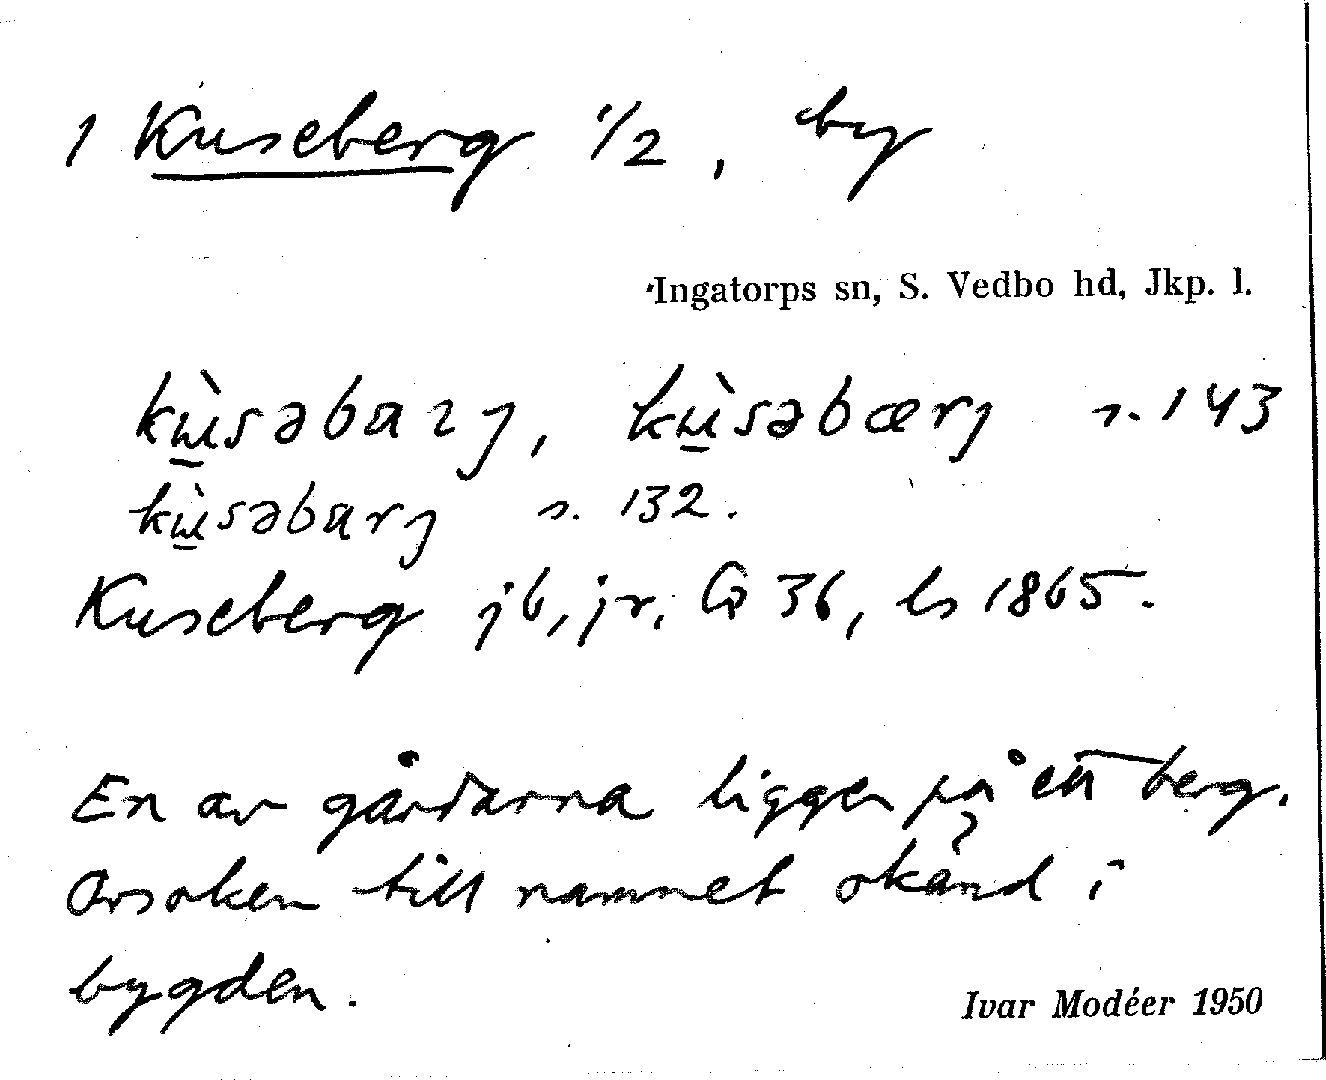 1 Kuseberg 1/2, by
Ingatorps sn, S. Vedbo hd, Jkp. l.
kùsəbarj, kùsəbærj s. 143
kùsəbarj s. 132.
Kuseberg jb, jr, GS 36, ls 1865.
En av gårdarna ligger på ett berg.
Orsaken till namnet okänd i
bygden.
Ivar Modéer 1950